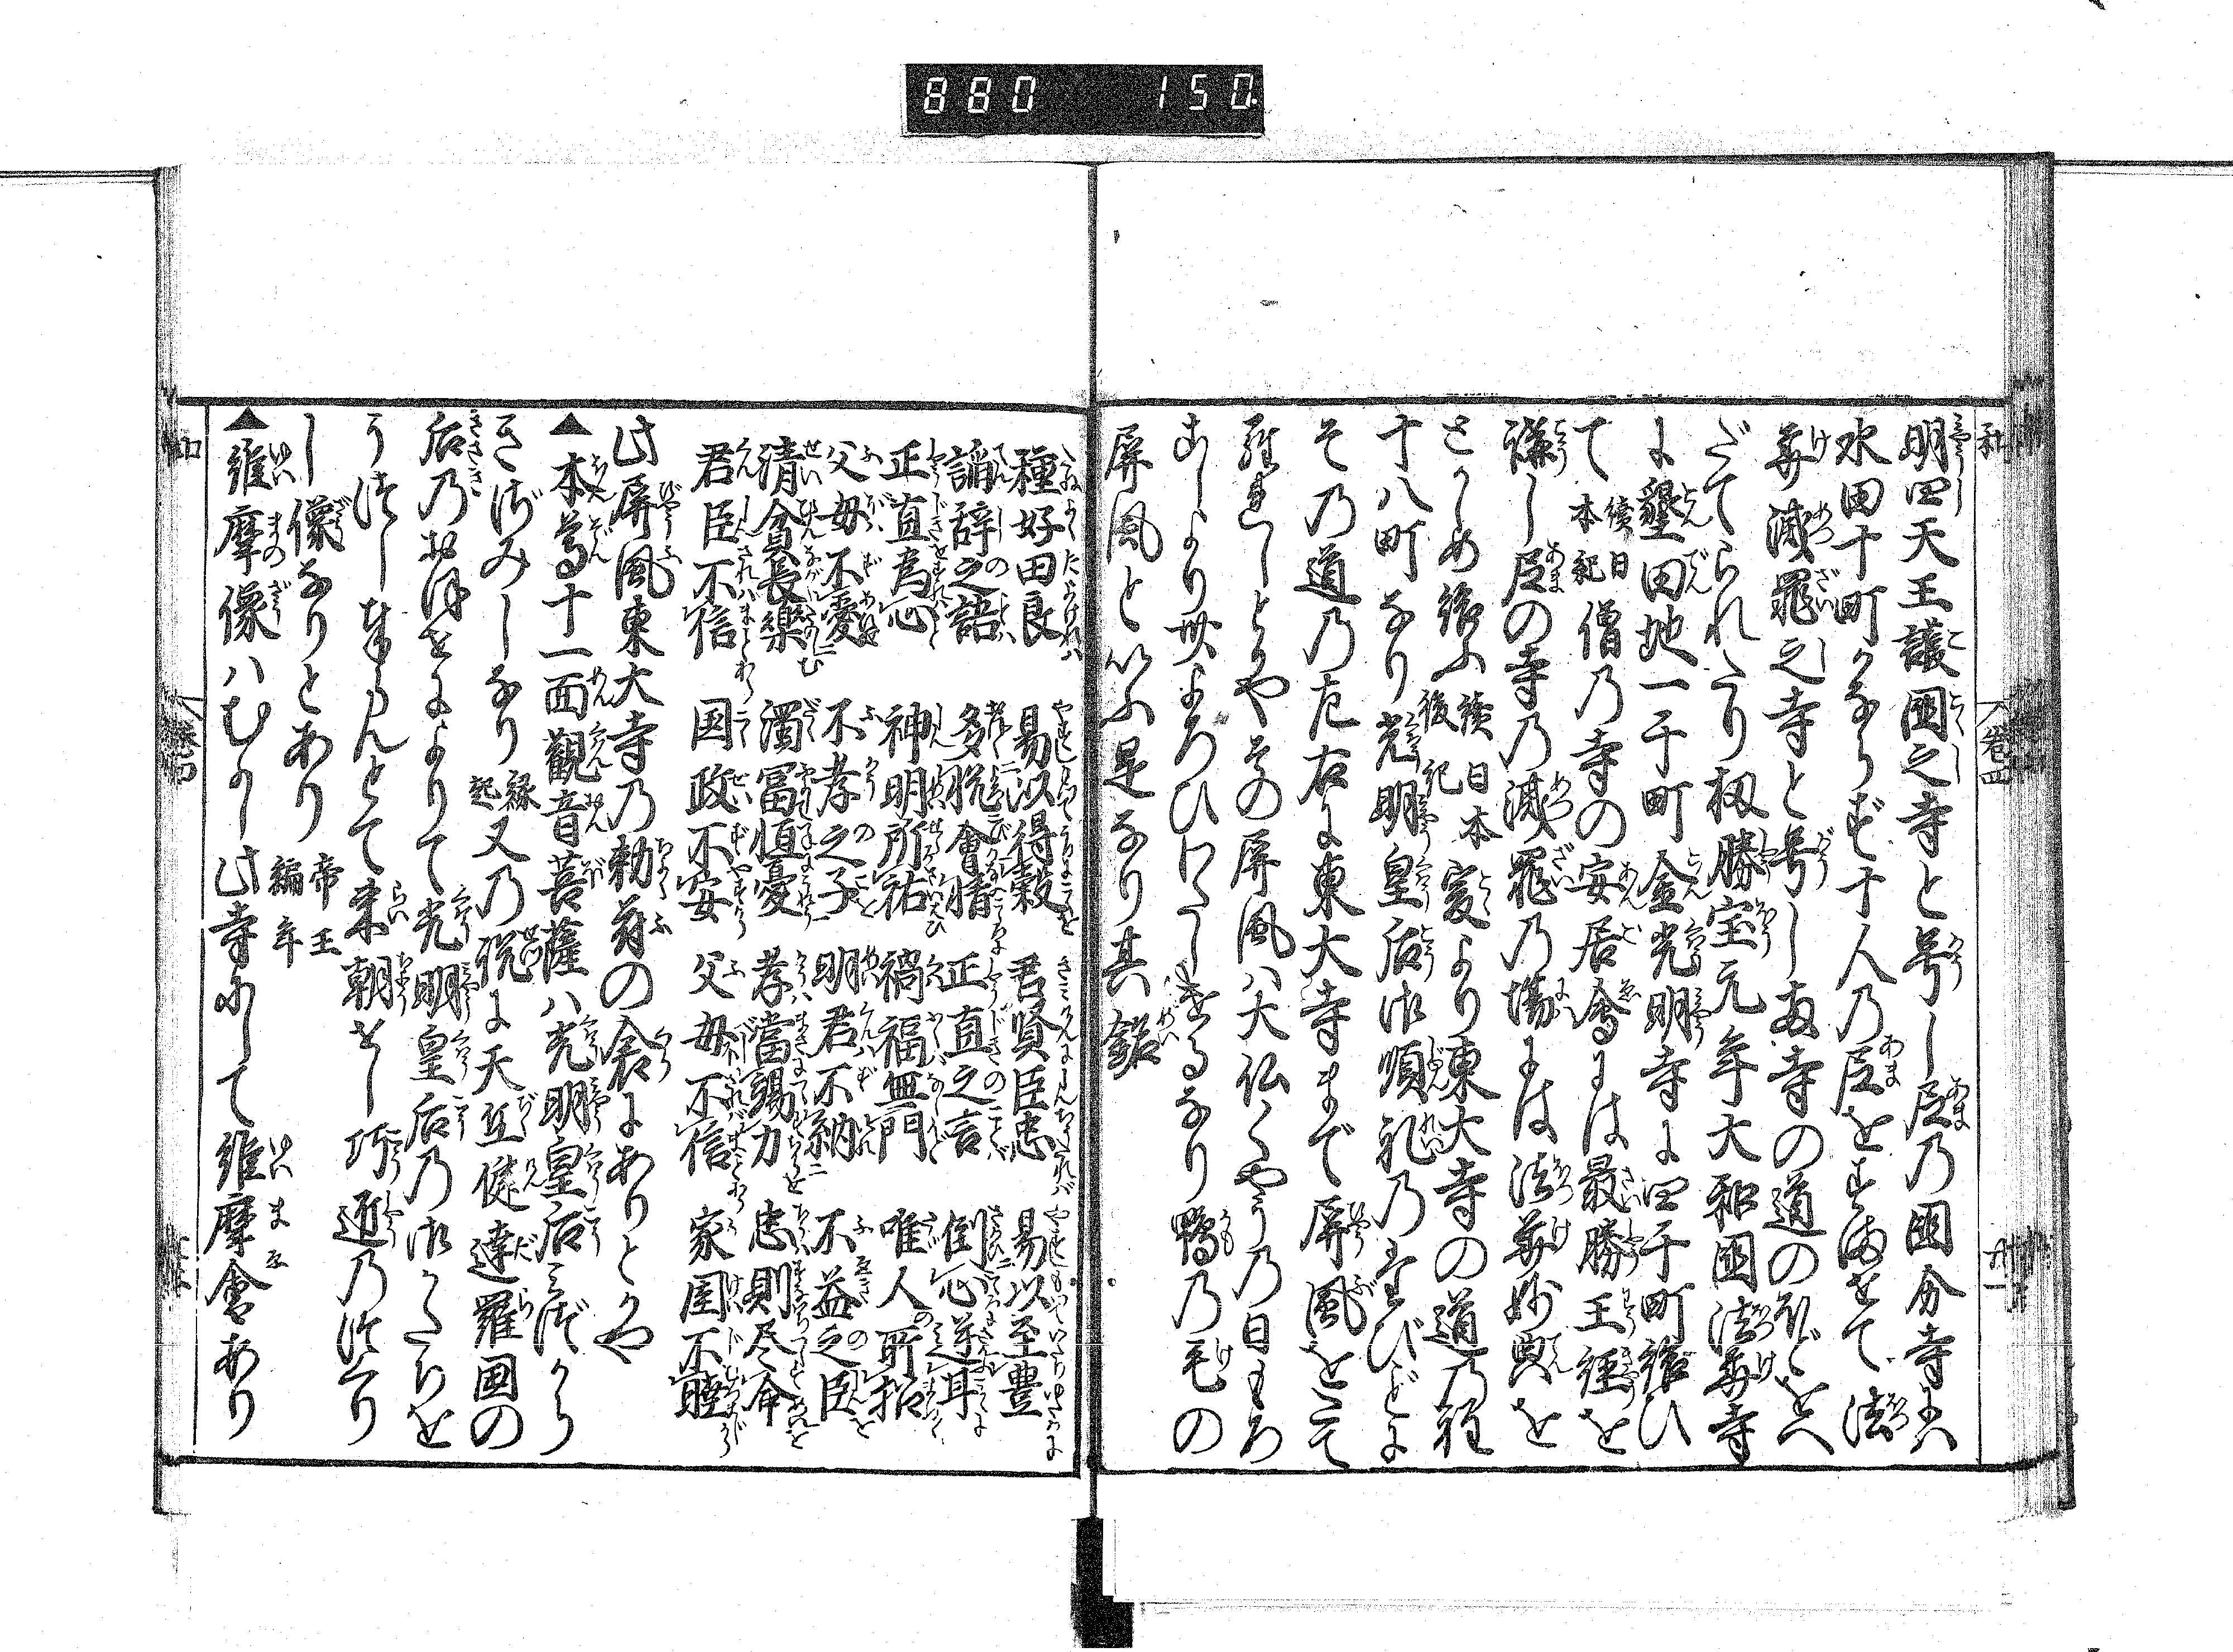 880 150
和 巻四 廿一
明四天王護國之寺と号し尼乃國分寺には
水田十町かならず十人乃尼をすませて法
華滅罪之寺と号し両寺の道のほどをへ
だてられたり 勝宝元年大和國法華寺
に墾田地一千町金光明寺に四千町給ひ
て 續日本紀 僧乃寺の安居會には最勝王経を
講し尼の寺乃滅罪乃場には法華妙典を
さしめ給ふ 續日本後紀 爰より東大寺の道乃程
十八町なり光明皇后御順礼乃たびごとに
その道乃左右に東大寺まで屏風をたて
られしとかや その屏風ハ大仏くやう乃日もろ
こしより世よろひわたしけるなり 鴨乃毛の
屏風といふ是なり其銘
種好田良 易以得穀 君賢臣忠 易以至豊
諂辞之語 多悦會情 正直之言 倒心逆耳
正直為心 神明所祐 禍福無門 唯人所招
父母不愛 不孝之子 明君不納 不益之臣
清貧長樂 濁冨恒憂 孝當竭力 忠則尽命
君臣不信 国政不安 父母不信 家国不睦
此屏風東大寺乃勅封の倉にありとかや
▲本尊十一面觀音菩薩ハ光明皇后みづから
きざみしなり 縁起 又乃説に天竺健達羅国の
后乃おほせによりて光明皇后乃御かたちを
うつし奉らんとて来朝せし巧匠乃つくり
し像なりとあり 帝王編年
▲維摩像ハむかし此寺にして維摩會あり